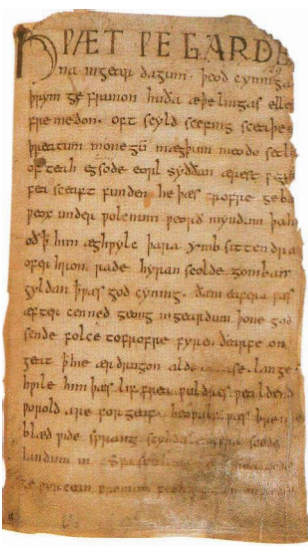 HǷÆT ǷE GARDE
na ingear dagum. þeod cyninga
þrym ge frunon huða æþelingas elle
fre medon. oft scyld scefing sceaþe
þreatum monegū mægþum meodo setl
of teah egsode eorl syððan ærest
fea sceaft funden he þæs frofre geba
ƿeox under ƿolcnum ƿeorð myndum þah
oðꝥ him æghƿylc þara ymb sittendra
ofer hron rade hyran scolde gomban
gyldan ꝥ ƿæs god cyning. ðæm eafera ƿæs
æfter cenned geong ingeardum þone god
sende folce tofrofre fyren ðearfe on
geat ꝥ hie ær drugon aldor ase. lange
hƿile him þæs lif frea ƿuldres ƿealdend
ƿorold are for geaf. beoƿulf ƿæs breme
blæd ƿide sprang scyldes eafera scede
landum in